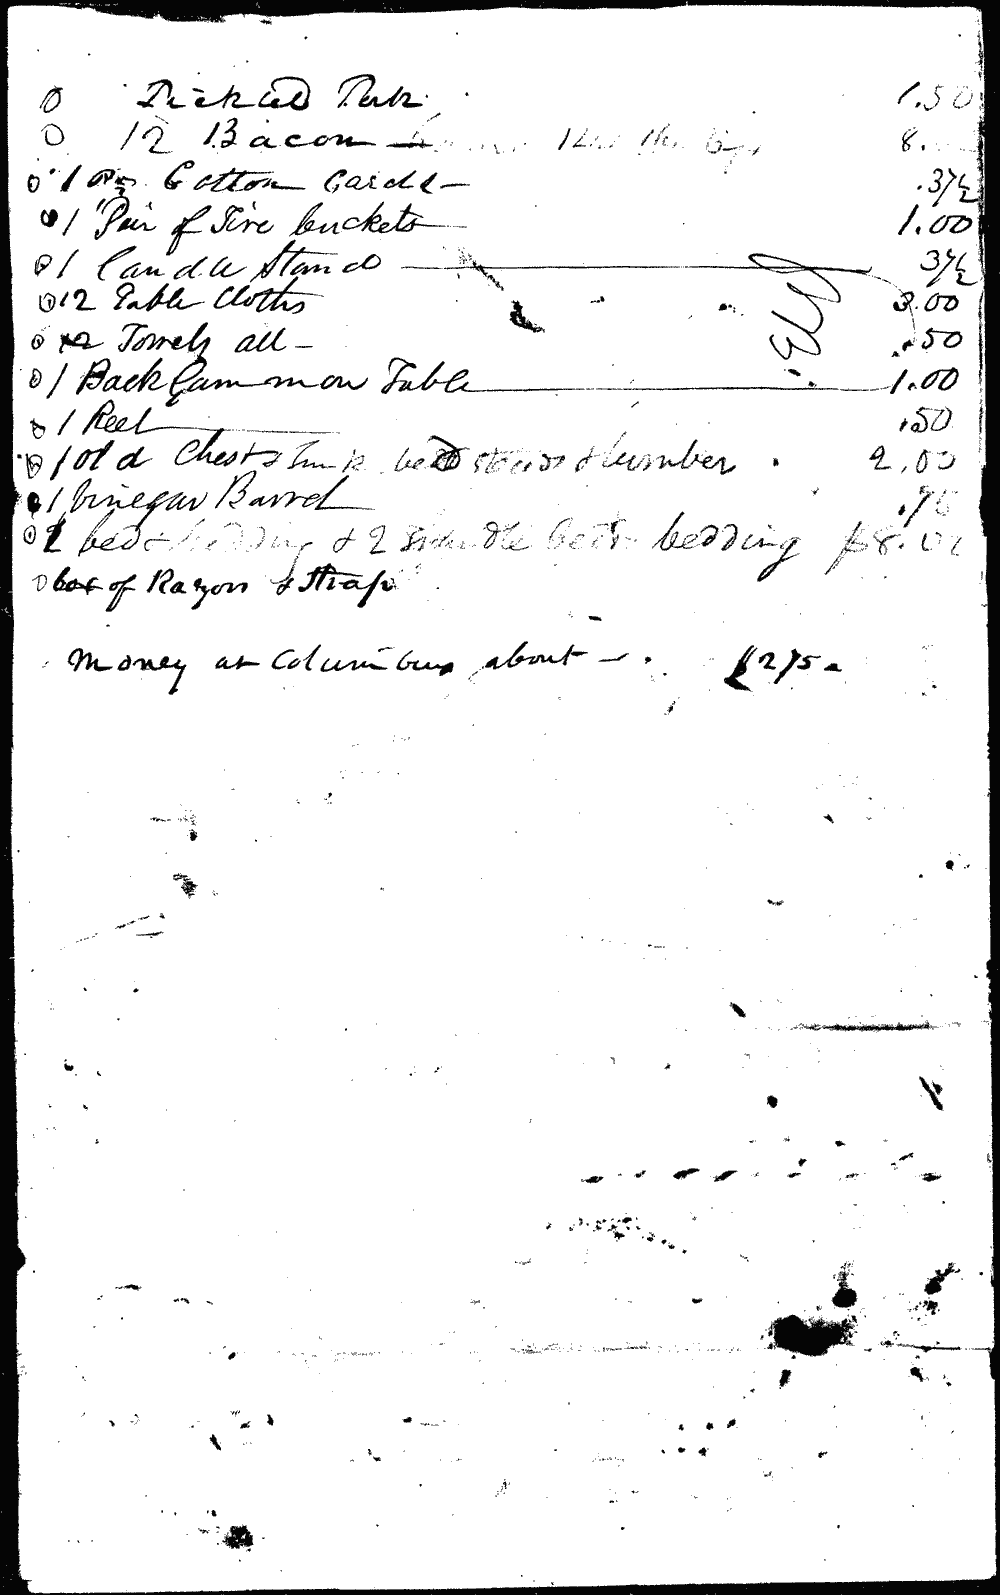 0 Pickled Pork 1.50
0 12 Bacon 8.
0 1 pr Cotton Cards — .37½
0 1 Pair of Fire buckets 1.00
0 1 Candle Stand 37½
0 12 Table Cloths 3.00
0 12 Towels all — .50
0 1 Back Gammon Table 1.00
0 1 Reel .50
0 1 old Chest & Trunk bed steads & lumber . 2.00
0 1 Vinegar Barrel .75
0 2 bed & bedding & 2 Trundle beds bedding $8.00
0 box of Razors & Strap
Money at Columbus about — . $275 —